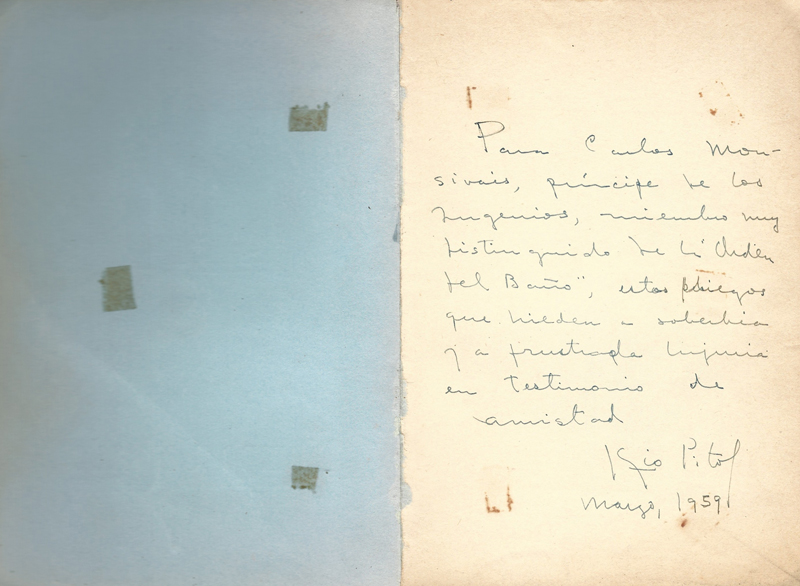 Para Carlos Mon-
sivais, príncipe de los
Ingenios, miembro muy
distinguido de la "Orden
del Baño", estos pliegos
que hieden a soberbia
y a frustrada lujuria
en testimonio de
amistad
Sergio Pitol
Marzo, 1959